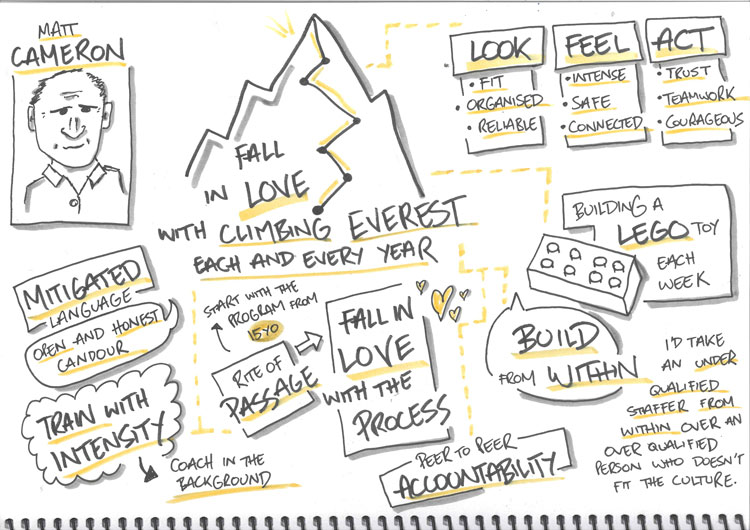 MATT
CAMERON
FALL
IN LOVE
WITH CLIMBING EVEREST
EACH AND EVERY YEAR
LOOK
• FIT
• ORGANISED
• RELIABLE
FEEL
• INTENSE
• SAFE
• CONNECTED
ACT
• TRUST
• TEAMWORK
• COURAGEOUS
MITIGATED
LANGUAGE
OPEN AND HONEST
CANDOUR
TRAIN WITH
INTENSITY
COACH IN THE
BACKGROUND
START WITH THE
PROGRAM FROM
15YO
RITE OF
PASSAGE
FALL IN
LOVE
WITH THE
PROCESS
BUILDING A
LEGO TOY
EACH
WEEK
BUILD
FROM WITHIN
I'D TAKE
AN UNDER
QUALIFIED
STAFFER FROM
WITHIN OVER AN
OVER QUALIFIED
PERSON WHO DOESN'T
FIT THE CULTURE.
PEER TO PEER
ACCOUNTABILITY